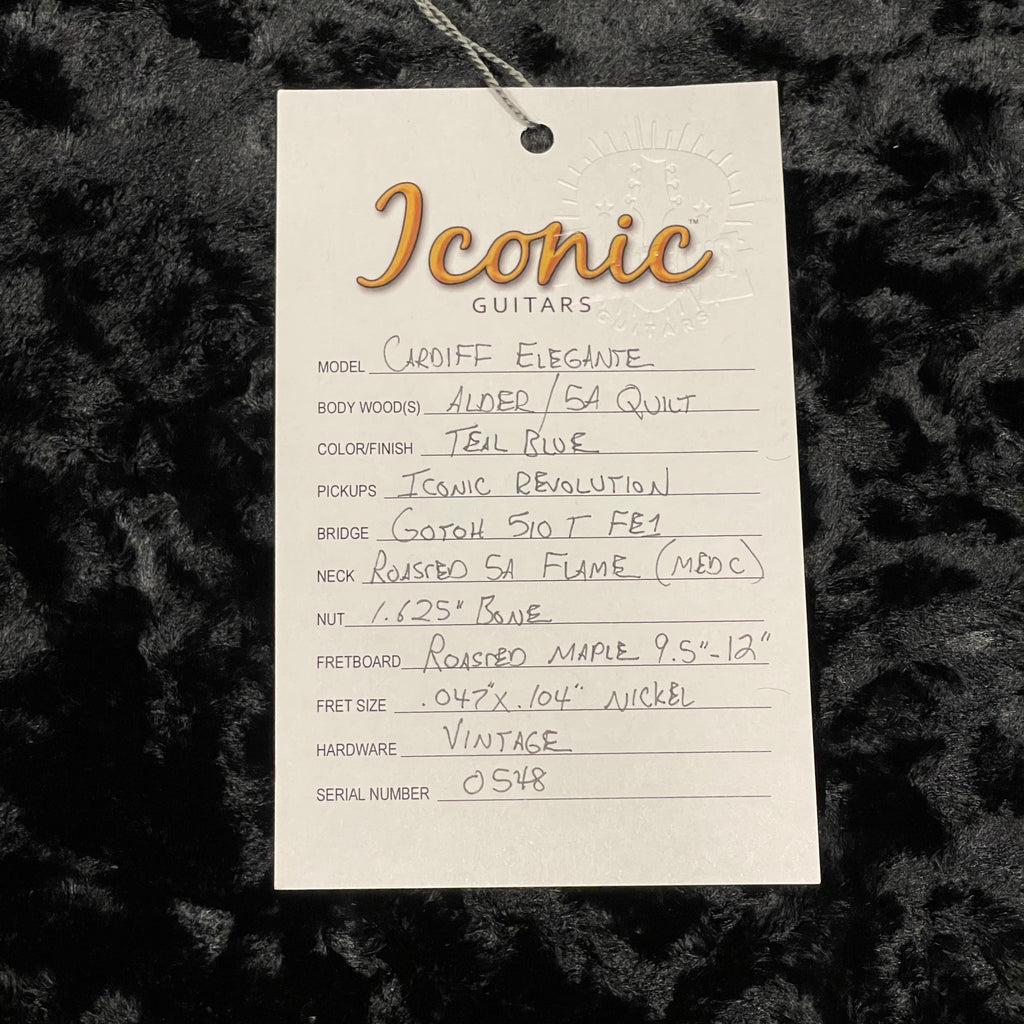 Iconic™
GUITARS
MODEL CARDIFF ELEGANTE
BODY WOOD(S) ALDER / 5A QUILT
COLOR/FINISH TEAL BLUE
PICKUPS ICONIC REVOLUTION
BRIDGE GOTOH 510 T FE1
NECK ROASTED 5A FLAME (MED C)
NUT 1.625" BONE
FRETBOARD ROASTED MAPLE 9.5"-12"
FRET SIZE .047"X.104" NICKEL
HARDWARE VINTAGE
SERIAL NUMBER 0548